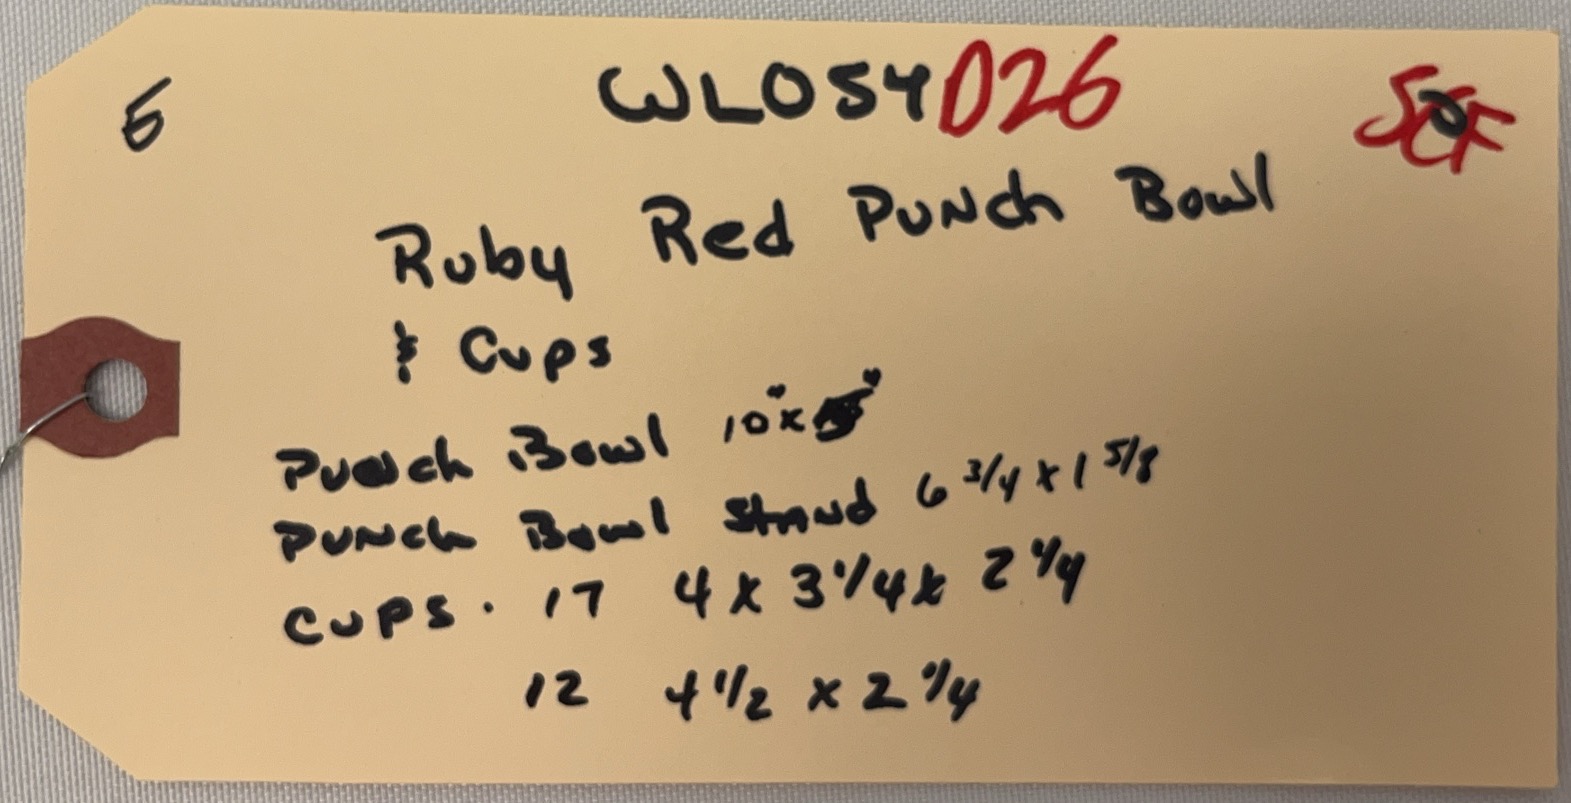 5 WL054D26 SCF
Ruby Red Punch Bowl
& Cups
Punch Bowl 10" x 5"
Punch Bowl Stand 6 3/4 x 1 5/8
Cups. 17 4 x 3 1/4 x 2 1/4
12 4 1/2 x 2 1/4